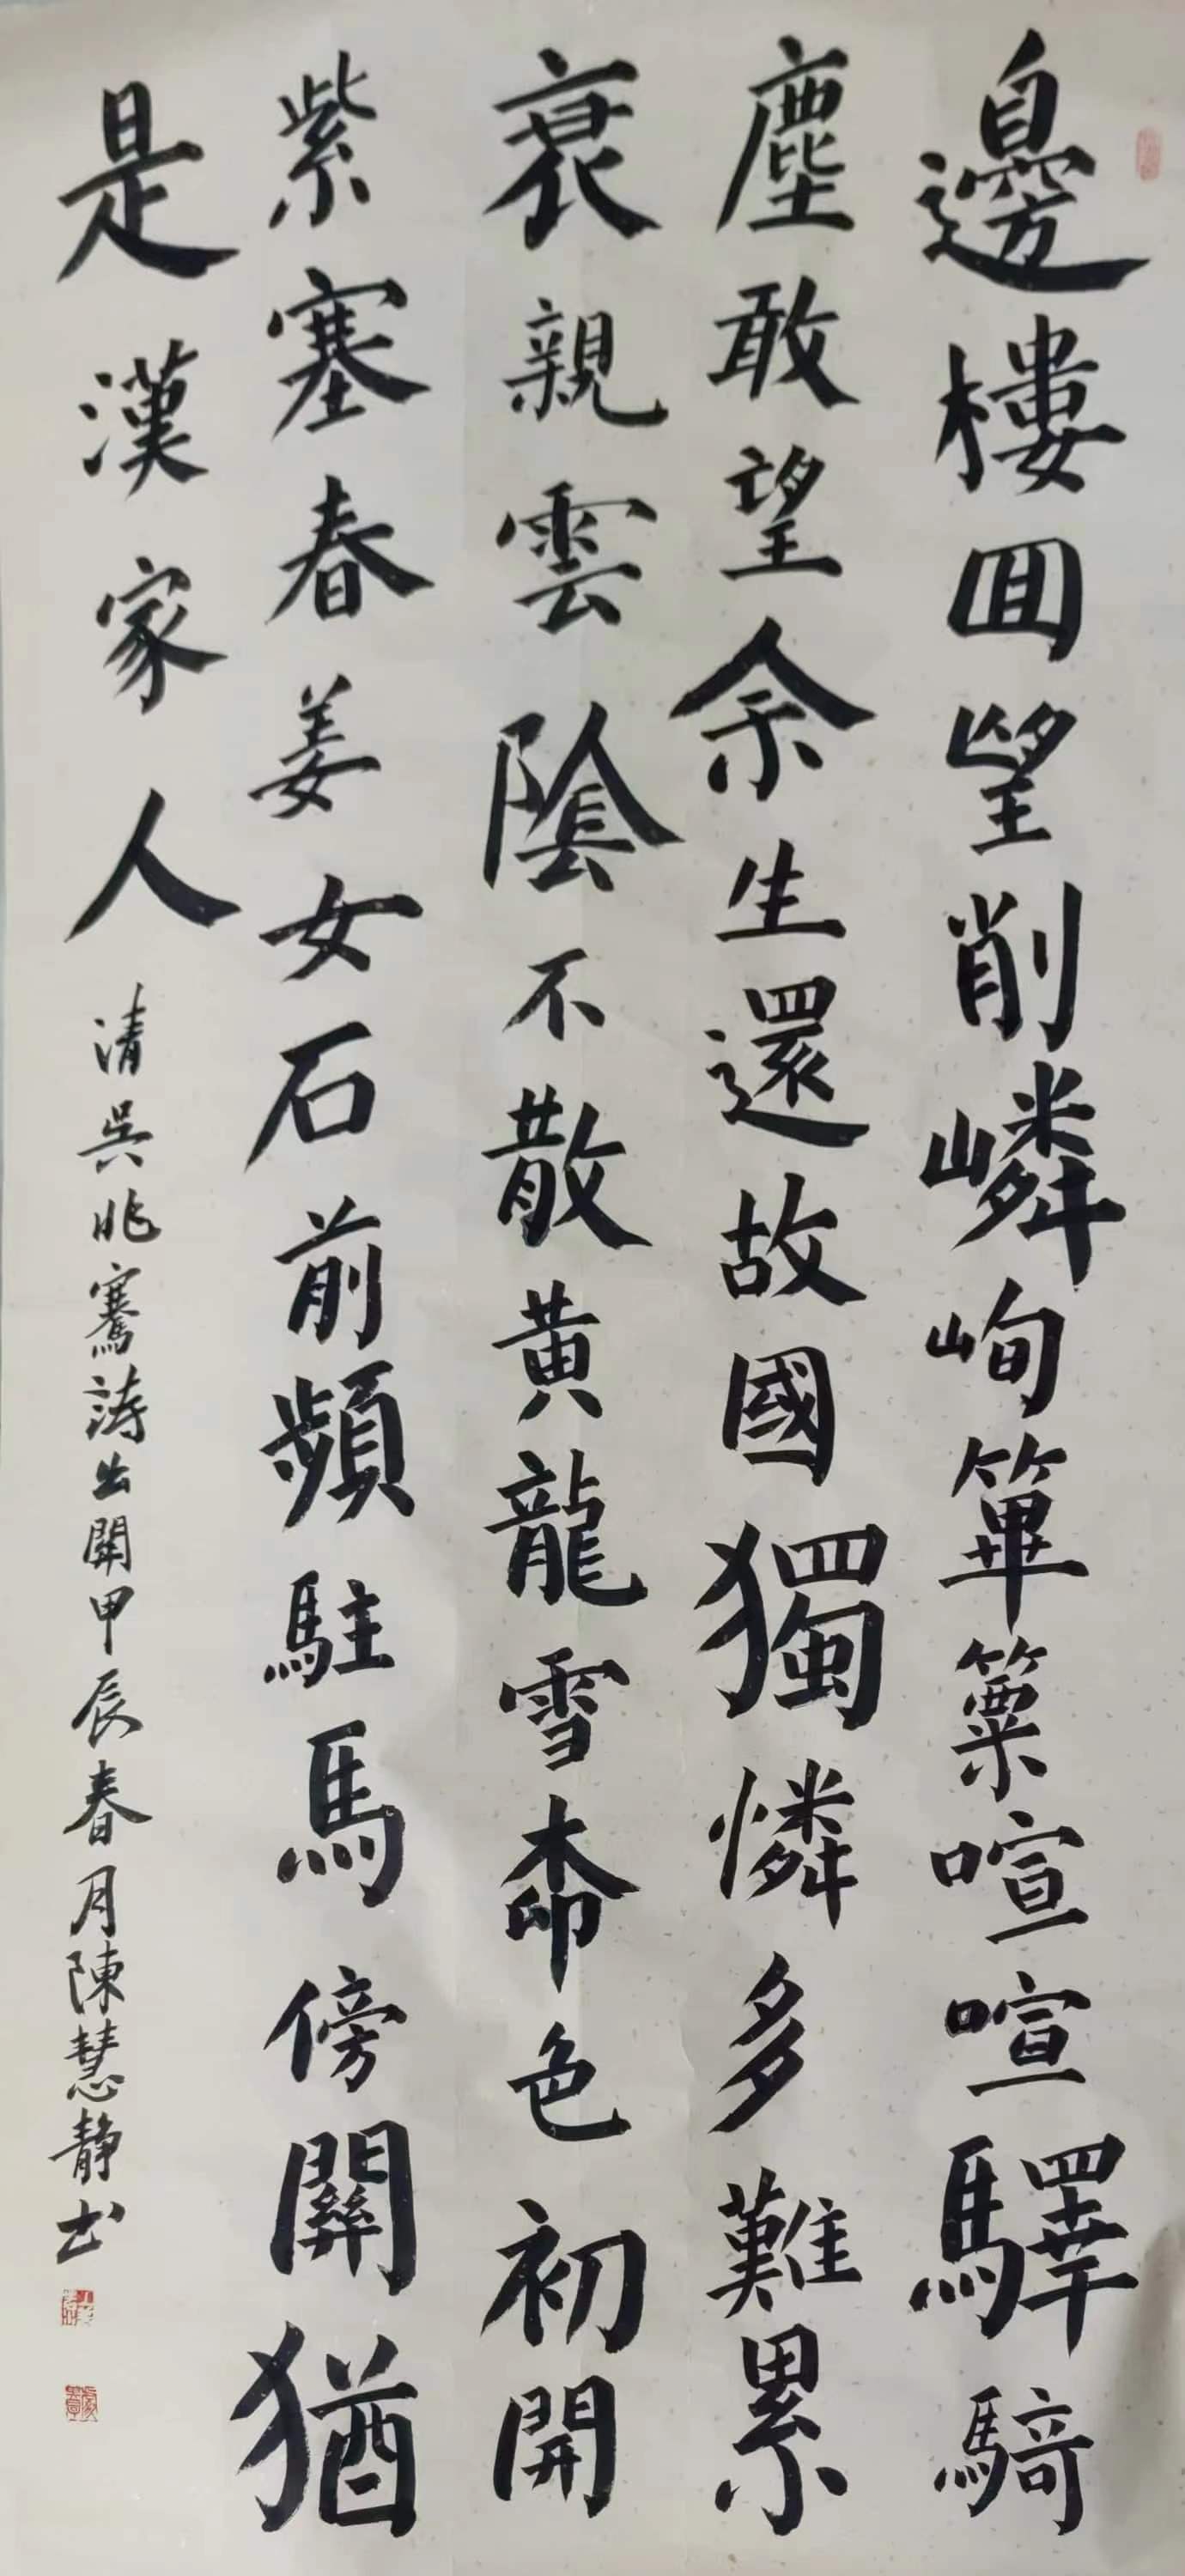 邊樓回望削嶙峋篳篥喧喧驛騎
塵敢望余生還故國獨憐多難累
衰親雲陰不散黃龍雪柰色初開
紫塞春姜女石前頻駐馬傍關猶
是漢家人
清吳兆騫詩出關甲辰春月陳慧静书